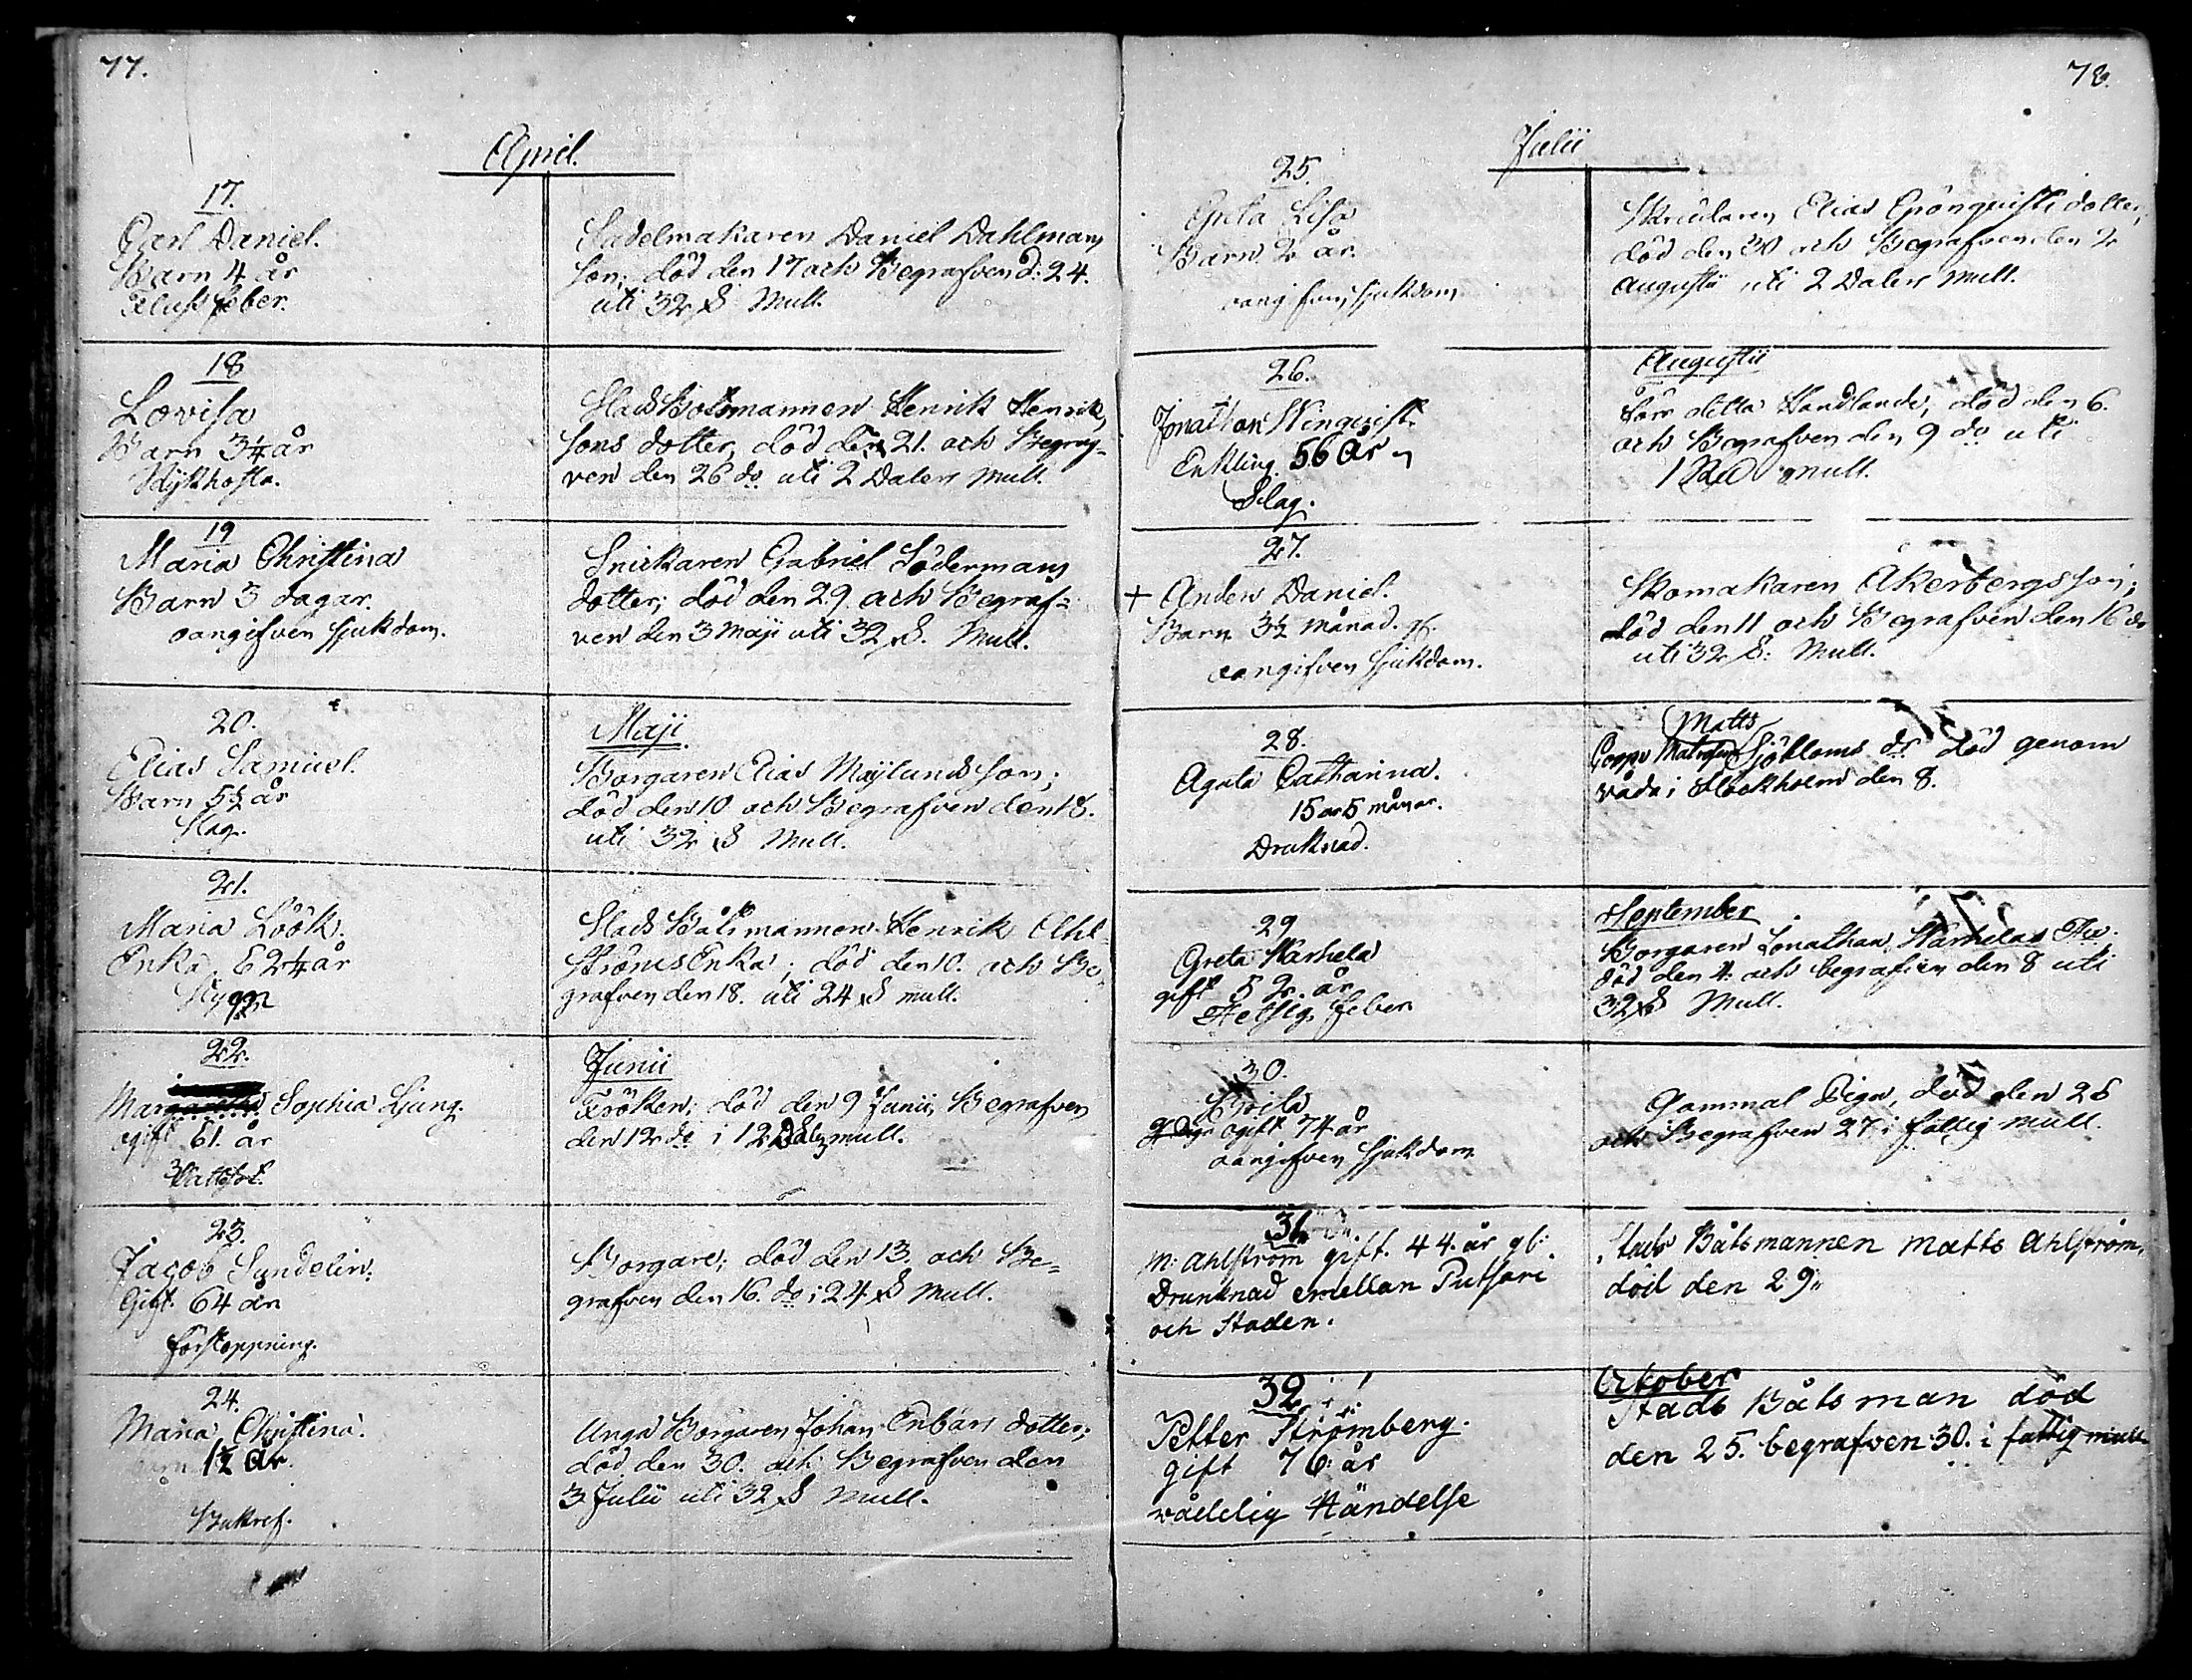 77.
April.
17.
Carl Daniel.
Barn 4 år
Flussfeber.
Sadelmakaren Daniel Dahlmans
son; död den 17 och Begrafven d: 24.
uti 32 S Mull.
18
Lovisa
Barn 3¼ år
Kijkhosta.
Stads Botsmannen Henrik Henrik
sons dotter, död den 21. och Begraf=
ven den 26 do uti 2 Daler Mull.
19
Maria Christina
Barn 3 dagar.
oangifven sjukdom.
Snickaren Gabriel Södermans
dotter; död den 29. och Begraf=
ven den 3 Maji uti 32 S. Mull.
20.
Elias Samuel.
Barn 5½ år
Slag.
Maji
Borgaren Elias Majlunds son;
död den 10. och Begrafven den 18.
uti 32 S Mull.
21.
Maria Löök.
Enka. 82¼ år
Stygn
Stads Båtsmannen Henrik Ahl
ströms Enka; död den 10. och Be
grafven den 18. uti 24 S mull.
22.
Margaretha Sophia Ljung.
ogift 61. år
Vattsot.
Junii
Fröken; död den 9 Junii, Begrafven
den 12 do i 12 Daler mull.
23.
Jacob Sundelin.
Gift. 64 år
förstoppning.
Borgare; död den 13. och Be=
grafven den 16. do i 24 S Mull.
24.
Maria Christina.
barn 1½ År.
Bukref.
Unga Borgaren Johan Enbärs dotter;
död den 30. och Begrafven den
3 Julii uti 32 S Mull.
78.
Julii
25.
Greta Lisa
Barn 2 år.
oangifven sjukdom
Skrudaren Elias Grönquists dotter,
död den 30 och Begrafven den 2
Augustii uti 2 Daler Mull.
26.
Jonathan Wingqvist.
Enkling. 56 År
Slag.
Augustii
För detta Handlande, död den 6.
och Begrafven den 9 do uti
1 Rd mull.
27.
+ Anders Daniel.
Barn 3½ månad. gl.
oangifven sjukdom.
Skomakaren Åkerbergs son;
död den 11 och Begrafven den 16 do
uti 32 S: Mull.
28.
Agata Catharina.
15 år 5 månar.
Druknad.
Matts
Sjöbloms dr död genom
våda i Stockholm den 8.
29
Greta Karhela
gift 52. år
Hetsig feber
September
Borgaren Jonathan Karhelas Hu.
död den 4. och begrafven den 8 uti
32 S Mull.
30.
Brita
ogift 74 år
oangifven sjukdom
Gammal Piga, död den 25
och Begrafven 27 i fattig mull.
31.
M: Ahlström gift. 44. år gl:
Drunknad emellan Putsari
och Staden.
Stads Båtsmannen Matts Ahlström,
död den 29
32.
Petter Strömberg.
gift 76. år
vådelig Händelse
October
Stads Båtsman död
den 25. begrafven 30. i fattig mull